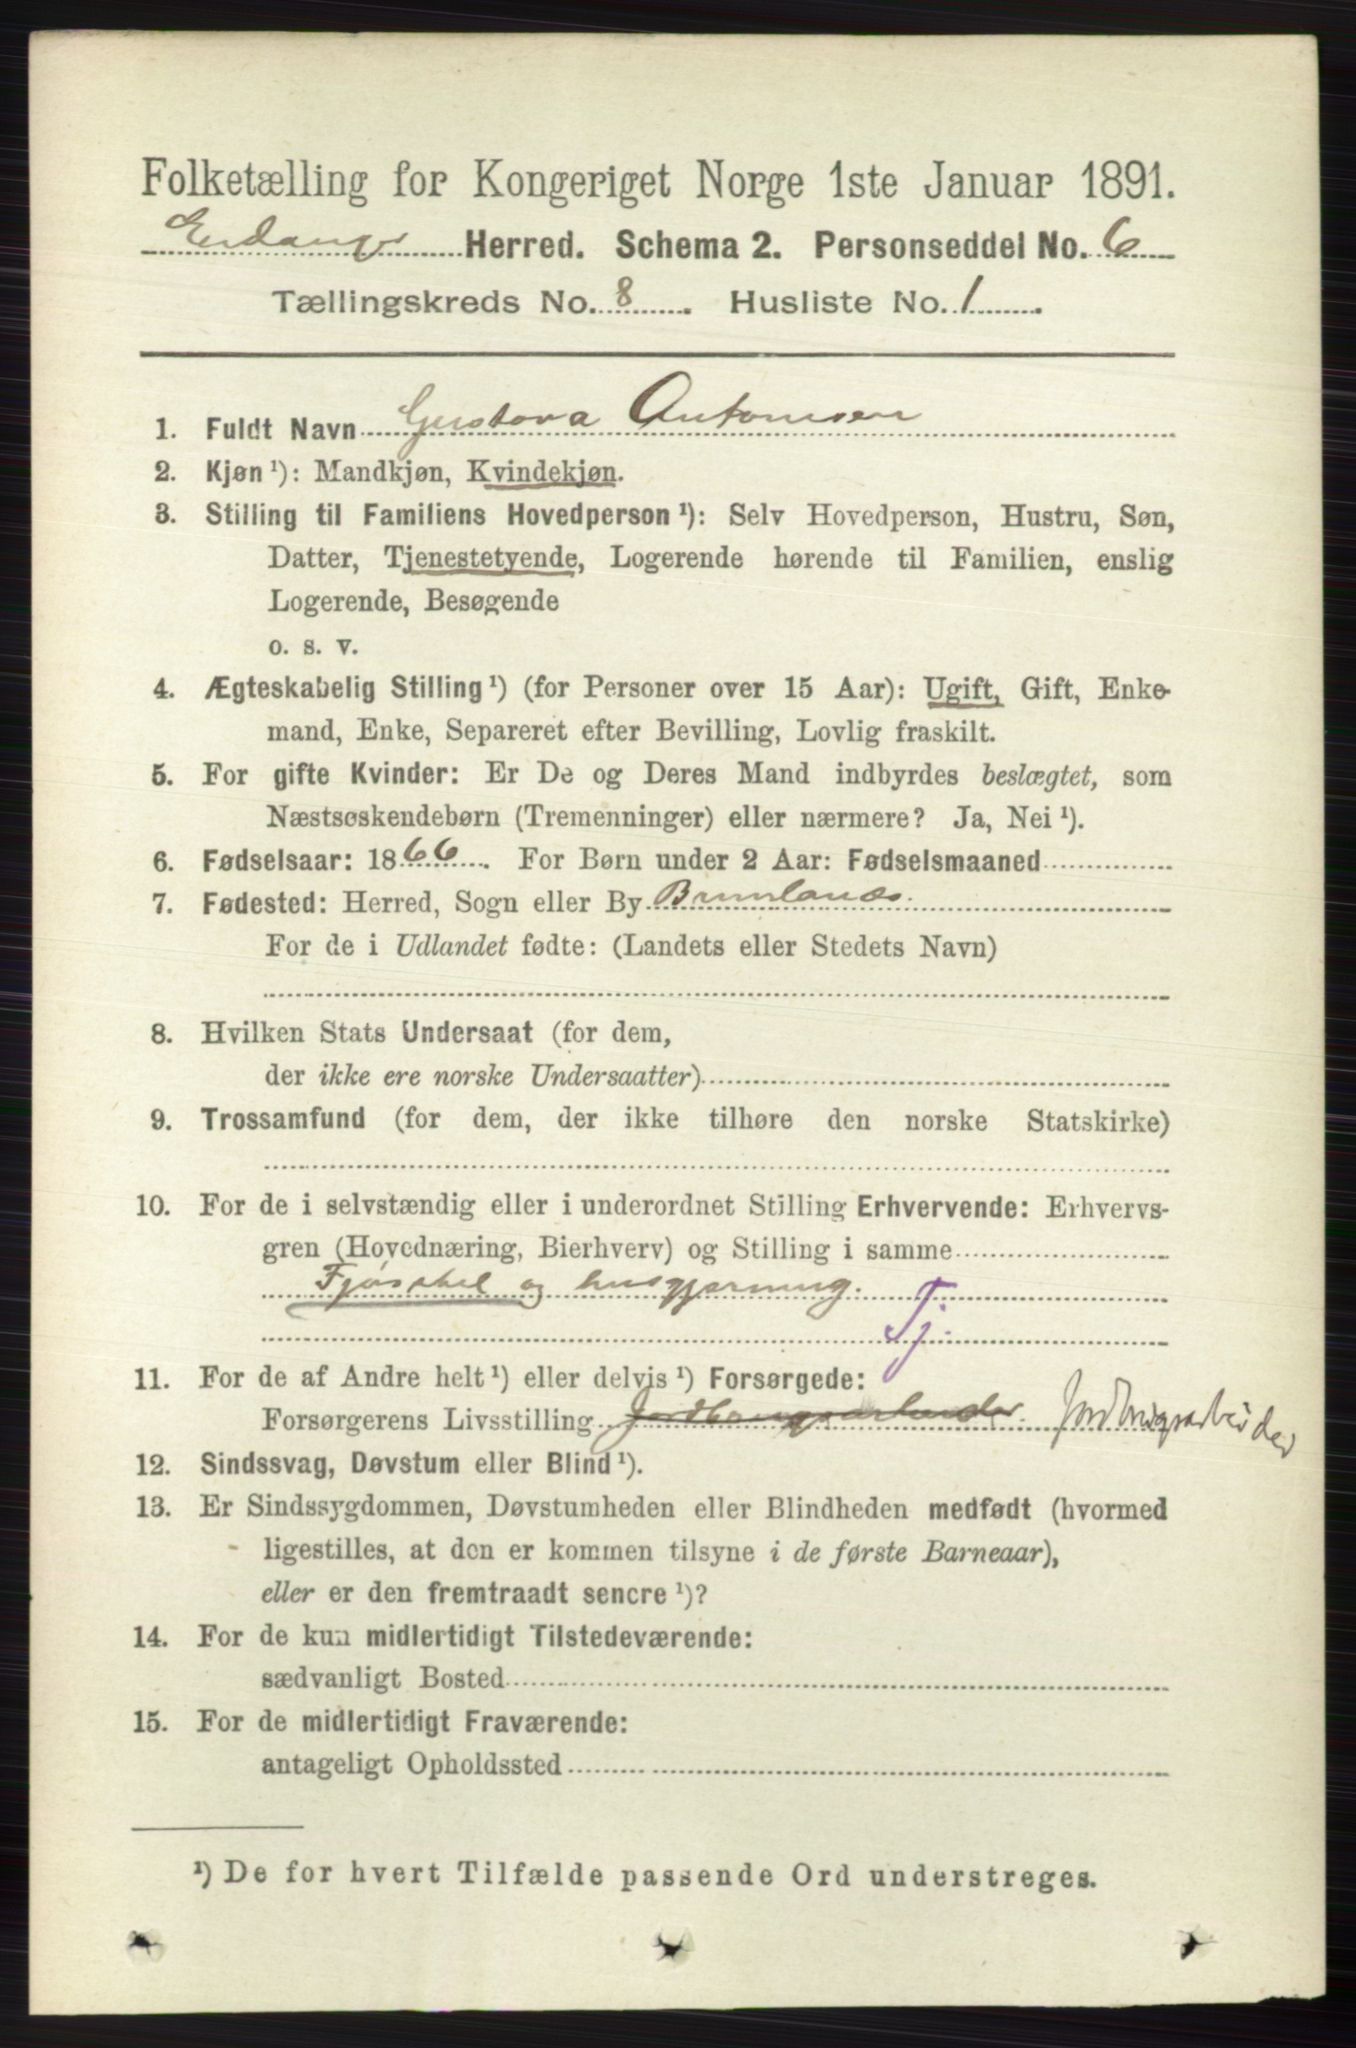 Folketælling for Kongeriget Norge 1ste Januar 1891.
Eidanger Herred. Schema 2. Personseddel No. 6
Tællingskreds No. 8. Husliste No. 1.
1. Fuldt Navn Gustava Antonsen
2. Kjøn¹): Mandkjøn, Kvindekjøn.
3. Stilling til Familiens Hovedperson¹): Selv Hovedperson, Hustru, Søn,
Datter, Tjenestetyende, Logerende hørende til Familien, enslig
Logerende, Besøgende
o. s. v.
4. Ægteskabelig Stilling¹) (for Personer over 15 Aar): Ugift, Gift, Enke-
mand, Enke, Separeret efter Bevilling, Lovlig fraskilt.
5. For gifte Kvinder: Er De og Deres Mand indbyrdes beslægtet, som
Næstsøskendebørn (Tremenninger) eller nærmere? Ja, Nei¹).
6. Fødselsaar: 1866. For Børn under 2 Aar: Fødselsmaaned
7. Fødested: Herred, Sogn eller By Brunlanæs.
For de i Udlandet fødte: (Landets eller Stedets Navn)
8. Hvilken Stats Undersaat (for dem,
der ikke ere norske Undersaatter)
9. Trossamfund (for dem, der ikke tilhøre den norske Statskirke)
10. For de i selvstændig eller i underordnet Stilling Erhvervende: Erhvervs-
gren (Hovednæring, Bierhverv) og Stilling i samme
Fjøsstel og husgjerning.
Tj.
11. For de af Andre helt¹) eller delvis¹) Forsørgede:
Forsørgerens Livsstilling Jordbrugsarbeider. Jordbrugsarbeider
12. Sindssvag, Døvstum eller Blind¹).
13. Er Sindssygdommen, Døvstumheden eller Blindheden medfødt (hvormed
ligestilles, at den er kommen tilsyne i de første Barneaar),
eller er den fremtraadt senere¹)?
14. For de kun midlertidigt Tilstedeværende:
sædvanligt Bosted
15. For de midlertidigt Fraværende:
antageligt Opholdssted
¹) De for hvert Tilfælde passende Ord understreges.